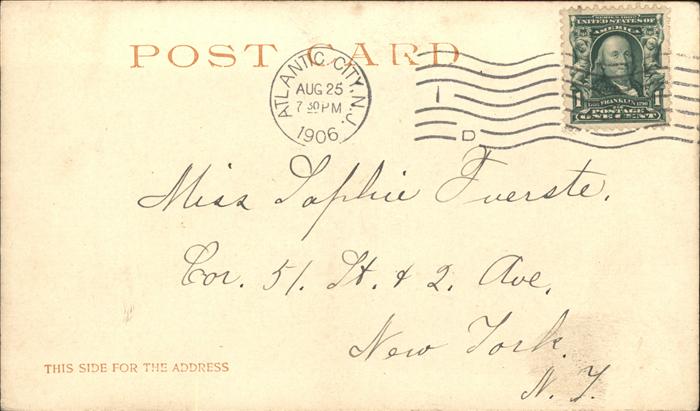 POST CARD
ATLANTIC CITY, N.J.
AUG 25
7 30 PM
1906
1
D
SERIES 1902
UNITED STATES OF
AMERICA
1706 FRANKLIN 1790
1 1
POSTAGE
ONE CENT
Miss Sophie Fuerste.
Cor. 51. St. & 2. Ave.
New York.
N. Y.
THIS SIDE FOR THE ADDRESS